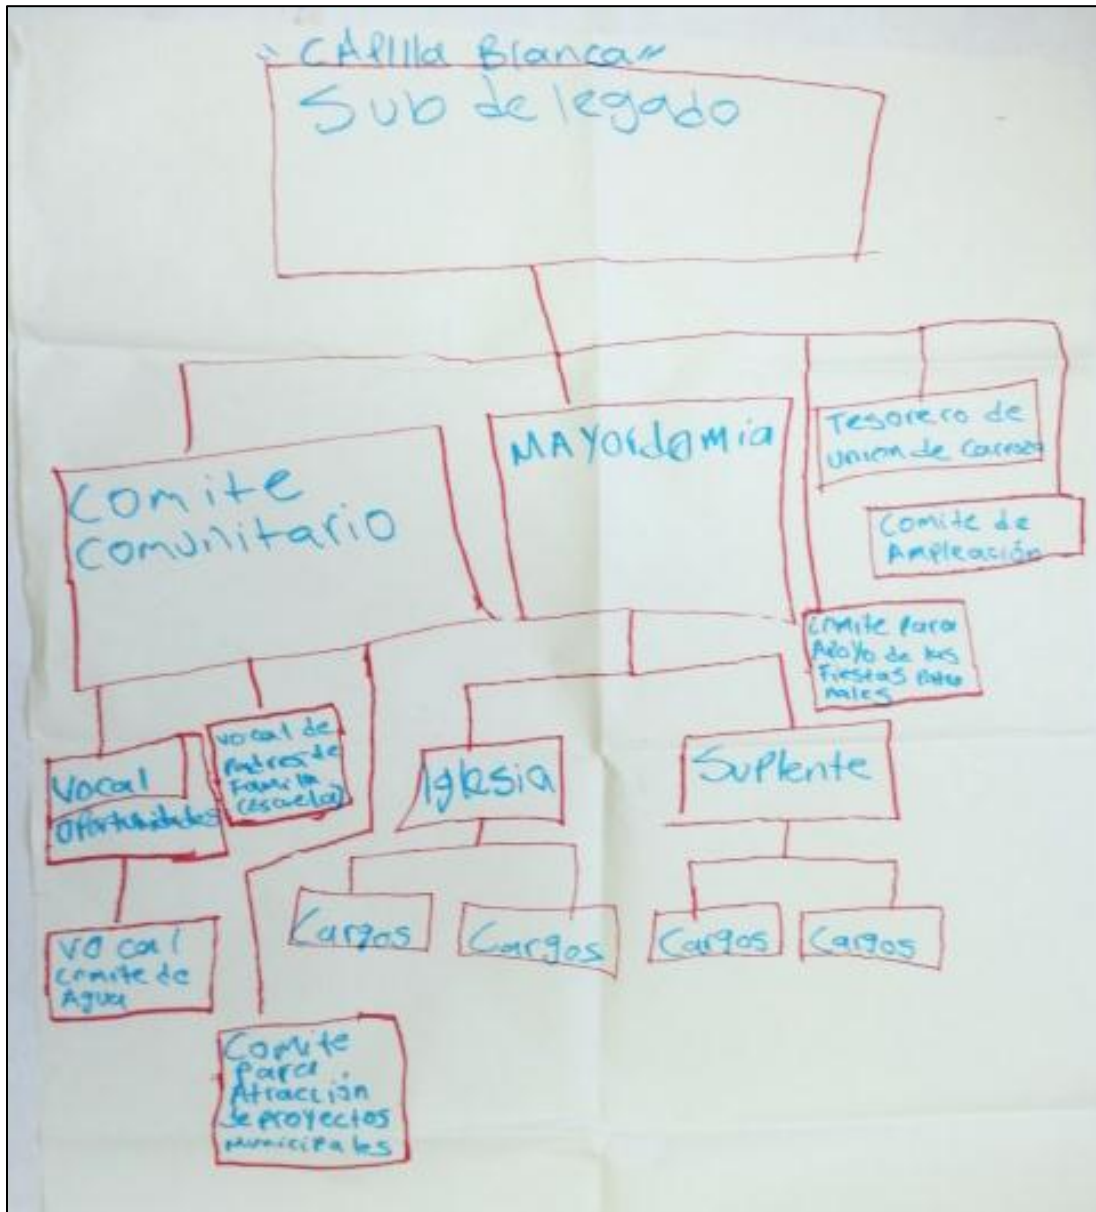 "CAPIlla Blanca"
Sub delegado
Comite
Comunitario
MAYordomia
Tesorero de
union de Carroza
Comite de
Ampleación
Cmite para
Apoyo de las
Fiestas Patro
nales
Vocal
Oportunidades
Vocal de
Padres de
Familia
(escuela)
Iglesia
Suplente
Vocal
Cmite de
Agua
Cargos
Cargos
Cargos
Cargos
Comite
para
Atracción
de proyectos
municipales